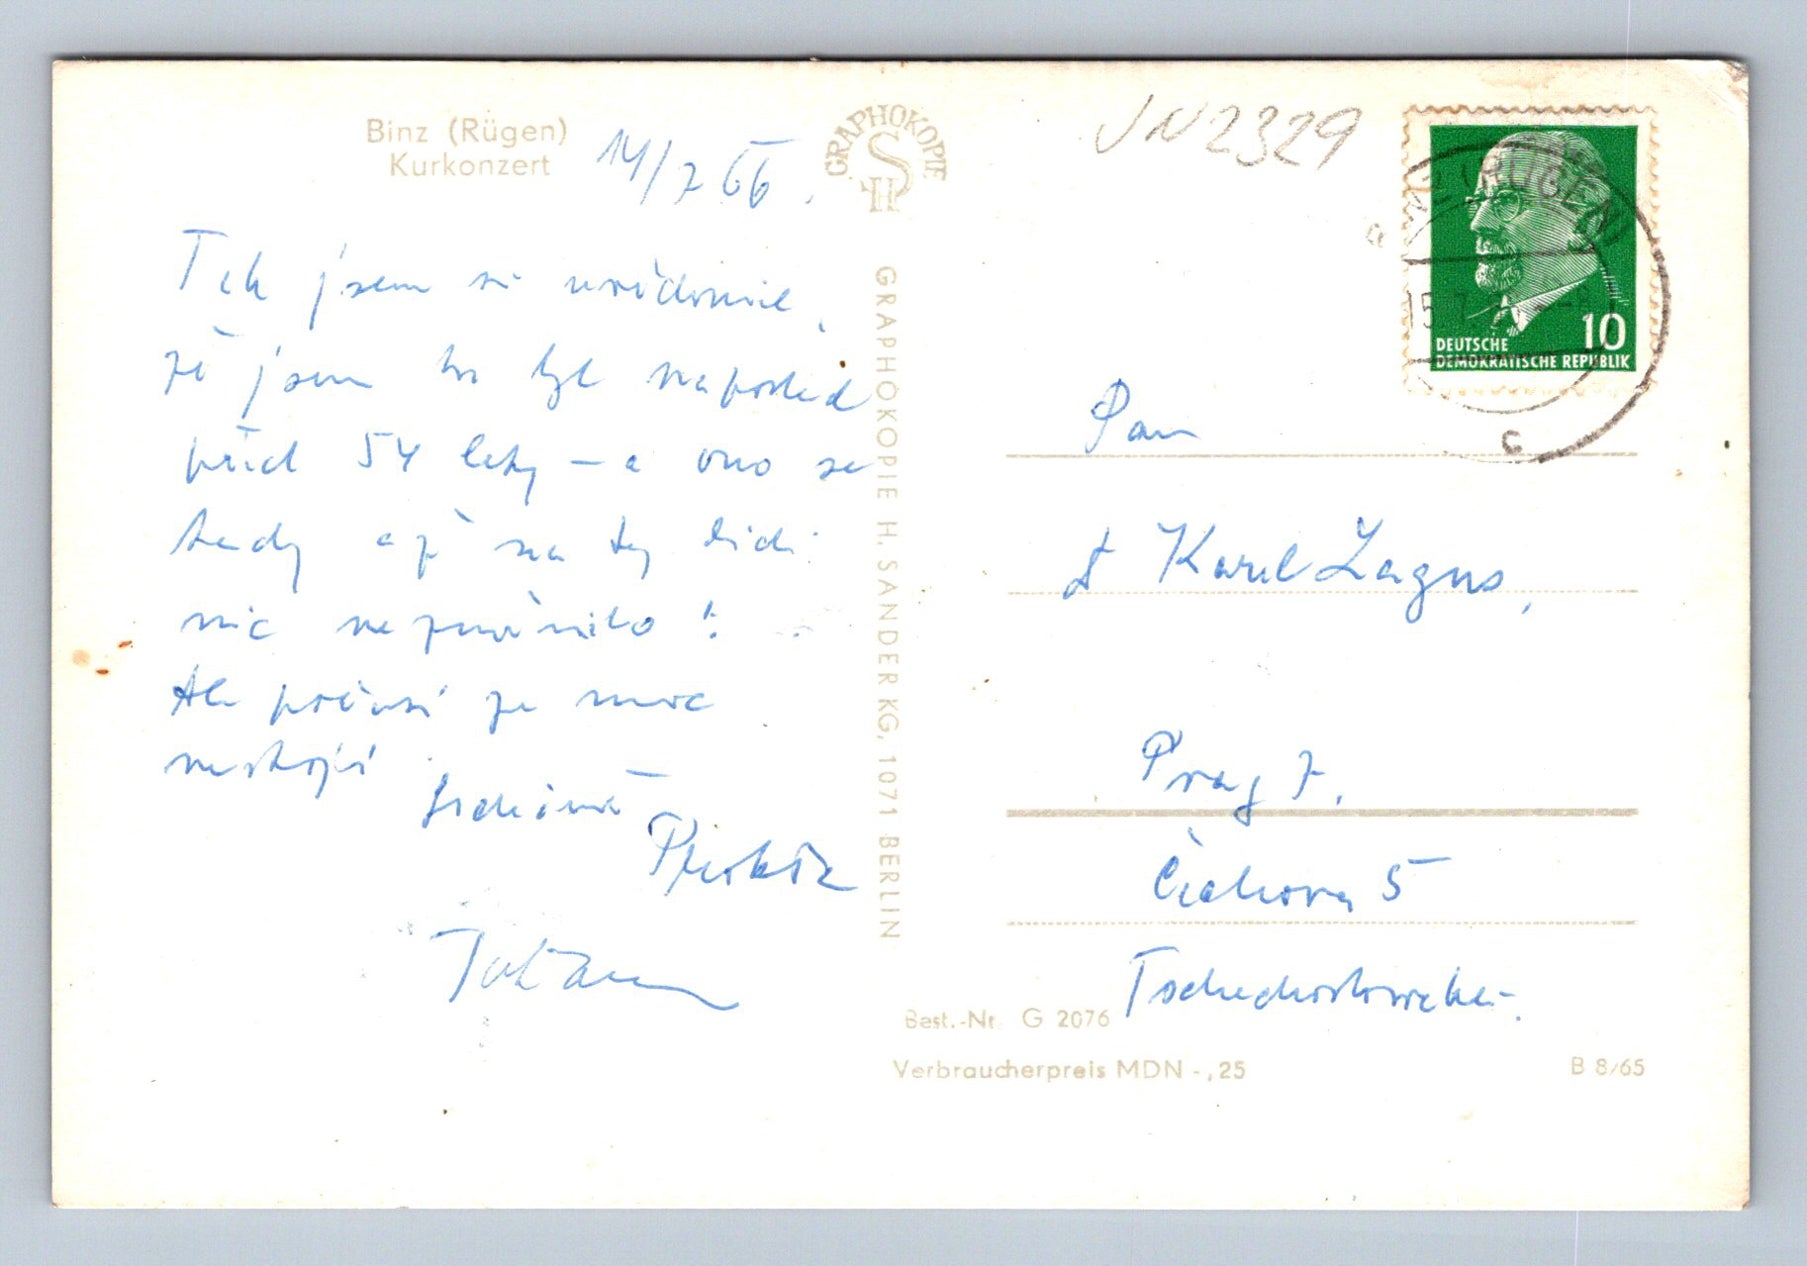 Binz (Rügen)
Kurkonzert
14/7 66.
Tak jsem si uvědomil,
že jsem tu byl naposled
před 54 lety – a ono se
tady až na ty lidi
nic nezměnilo!
Ale počasí je moc
nestojí
Srdečně
GRAPHOKOPIE
H S
GRAPHOKOPIE H. SANDER KG, 1071 BERLIN
JN 2329
RÜGEN
15.7.
c
10
DEUTSCHE
DEMOKRATISCHE REPUBLIK
Pan
Karel Lagus,
Prag 7.
Čechova 5
Tschechoslowakei.
Best.-Nr. G 2076
Verbraucherpreis MDN -,25
B 8/65